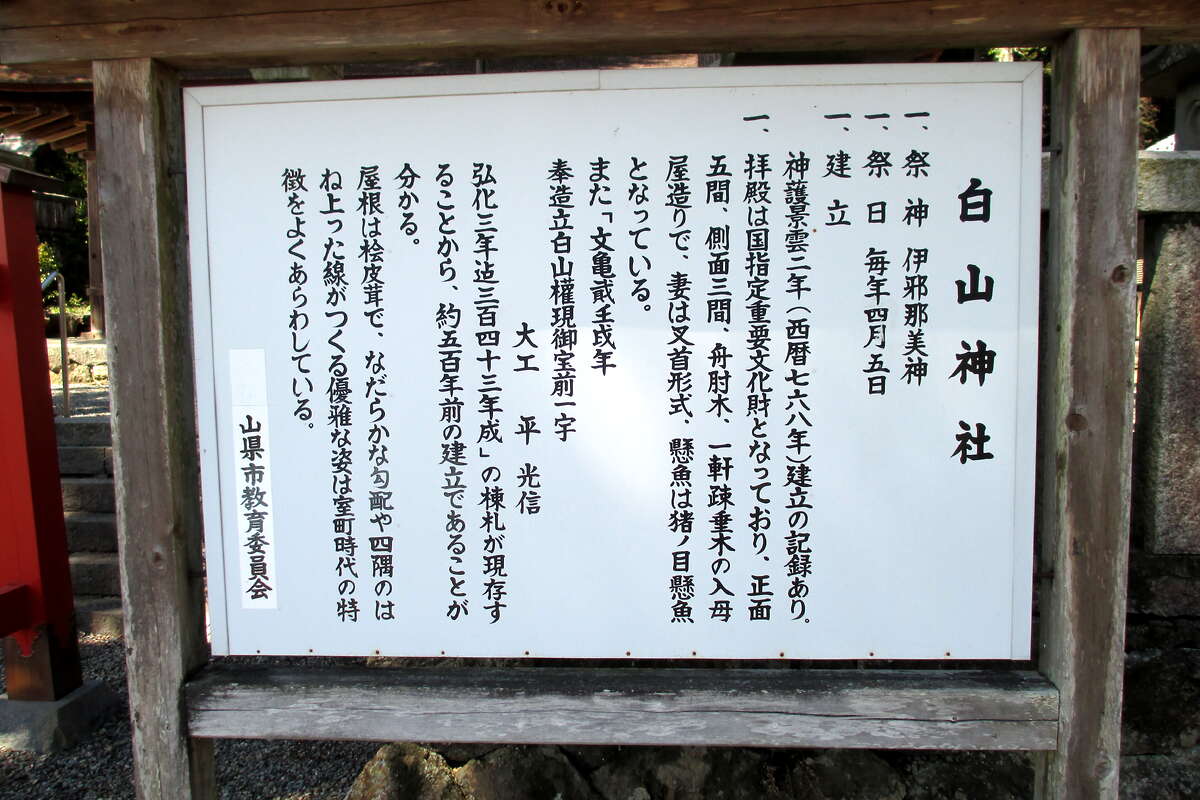 白山神社
一、祭神 伊邪那美神
一、祭日 毎年四月五日
一、建立
神護景雲二年（西暦七六八年）建立の記録あり。
一、拝殿は国指定重要文化財となっており、正面
五間、側面三間、舟肘木、一軒疎垂木の入母
屋造りで、妻は叉首形式、懸魚は猪ノ目懸魚
となっている。
また「文亀貮壬戌年
奉造立白山權現御宝前一宇
大工 平 光信
弘化三年迠三百四十三年成」の棟札が現存す
ることから、約五百年前の建立であることが
分かる。
屋根は桧皮茸で、なだらかな勾配や四隅のは
ね上った線がつくる優雅な姿は室町時代の特
徴をよくあらわしている。
山県市教育委員会